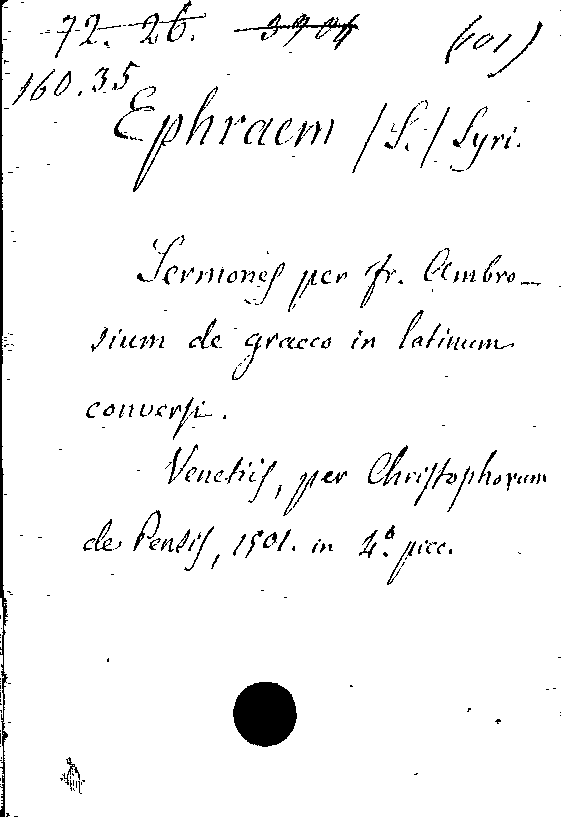 72. 26. 3904 (101)
160.35
Ephraem /S./ Syri.
Sermones per fr. Ambro-
sium de graeco in latinum
conversi.
Venetiis, per Christophorum
de Pensis, 1501. in 4.º picc.